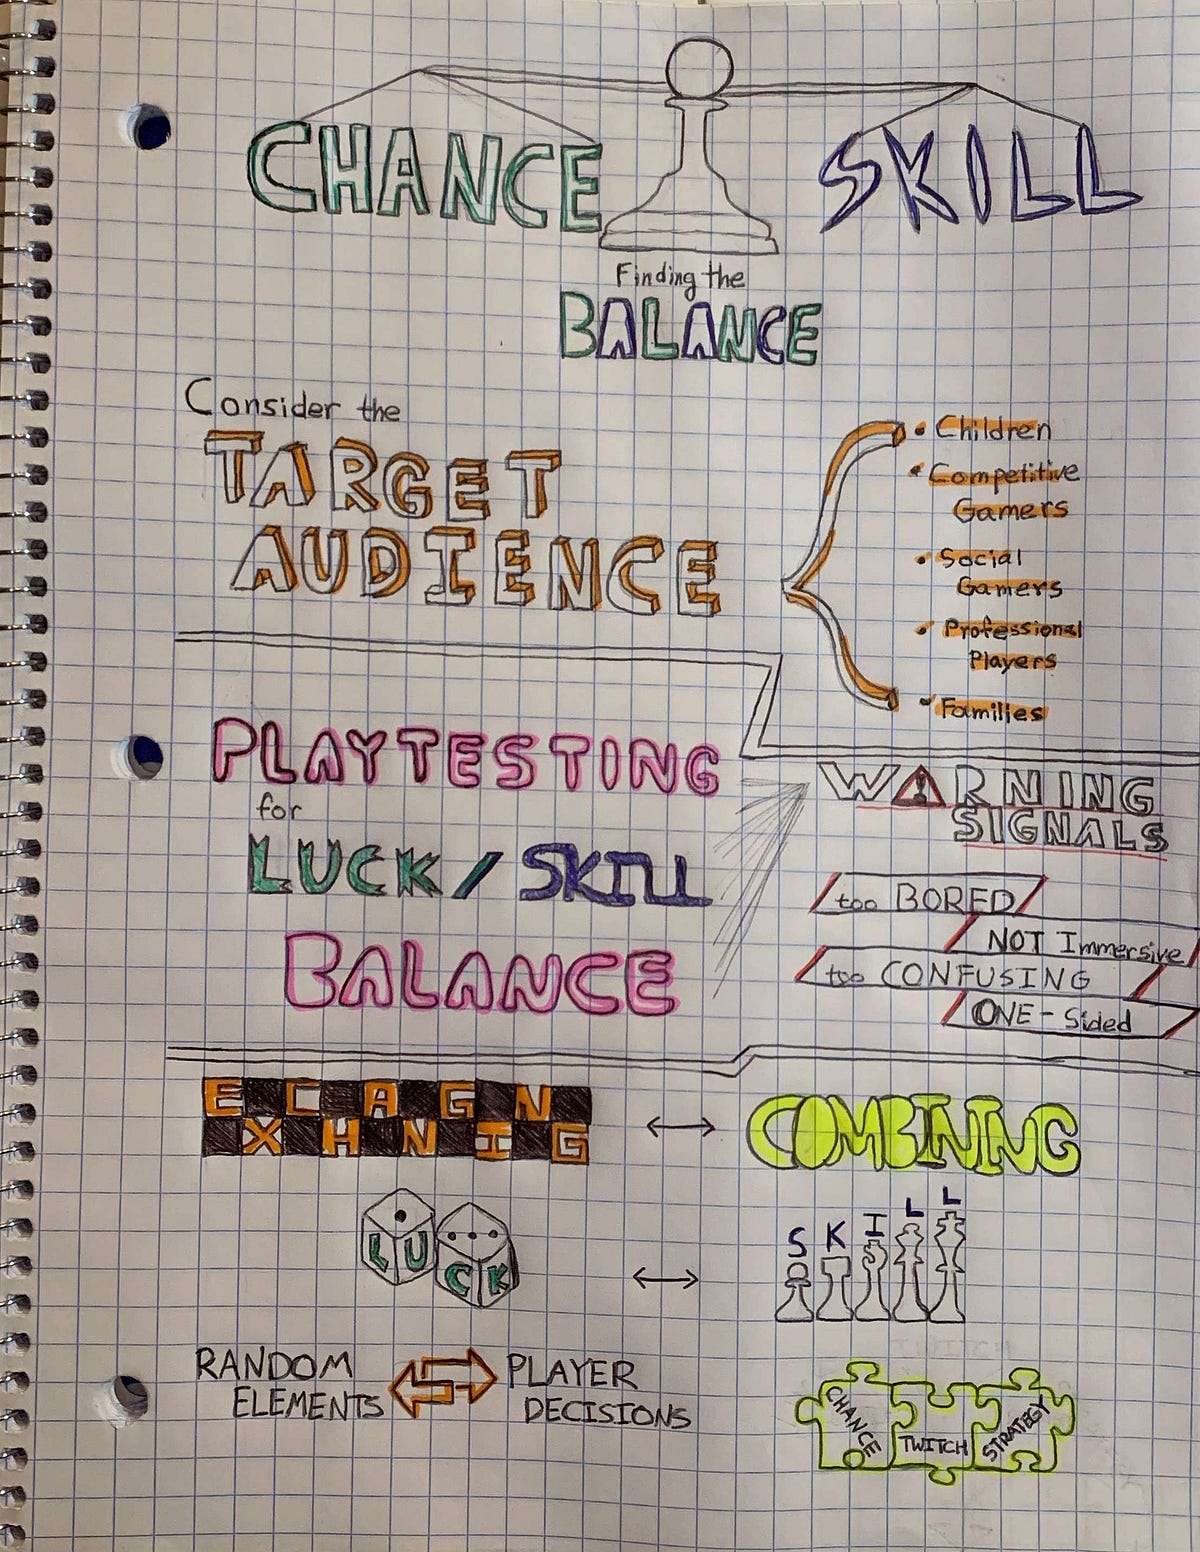 CHANCE SKILL
Finding the
BALANCE
Consider the
TARGET
AUDIENCE
• Children
• Competitive
Gamers
• Social
Gamers
• Professional
Players
• Families
PLAYTESTING
for
LUCK / SKILL
BALANCE
WARNING
SIGNALS
too BORED
NOT Immersive
too CONFUSING
ONE-Sided
EXCHANGING
COMBINING
LUCK
SKILL
RANDOM
ELEMENTS
PLAYER
DECISIONS
CHANCE
TWITCH
STRATEGY